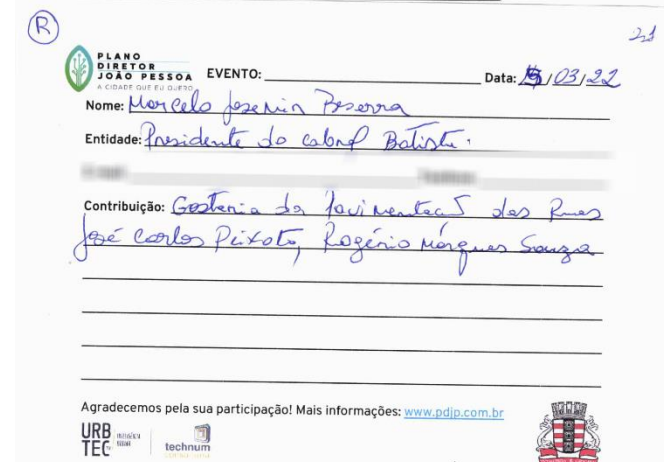 R
21
PLANO
DIRETOR
JOÃO PESSOA
A CIDADE QUE EU QUERO
EVENTO: Data: /03/22
Nome: Marcelo Josemin Beserra
Entidade: Presidente do cabral Batista.
Contribuição: Gostaria da pavimentaçaõ das Ruas
José Carlos Peixoto, Rogério Marques Souza
Agradecemos pela sua participação! Mais informações: www.pdjp.com.br
URB
TEC
technum